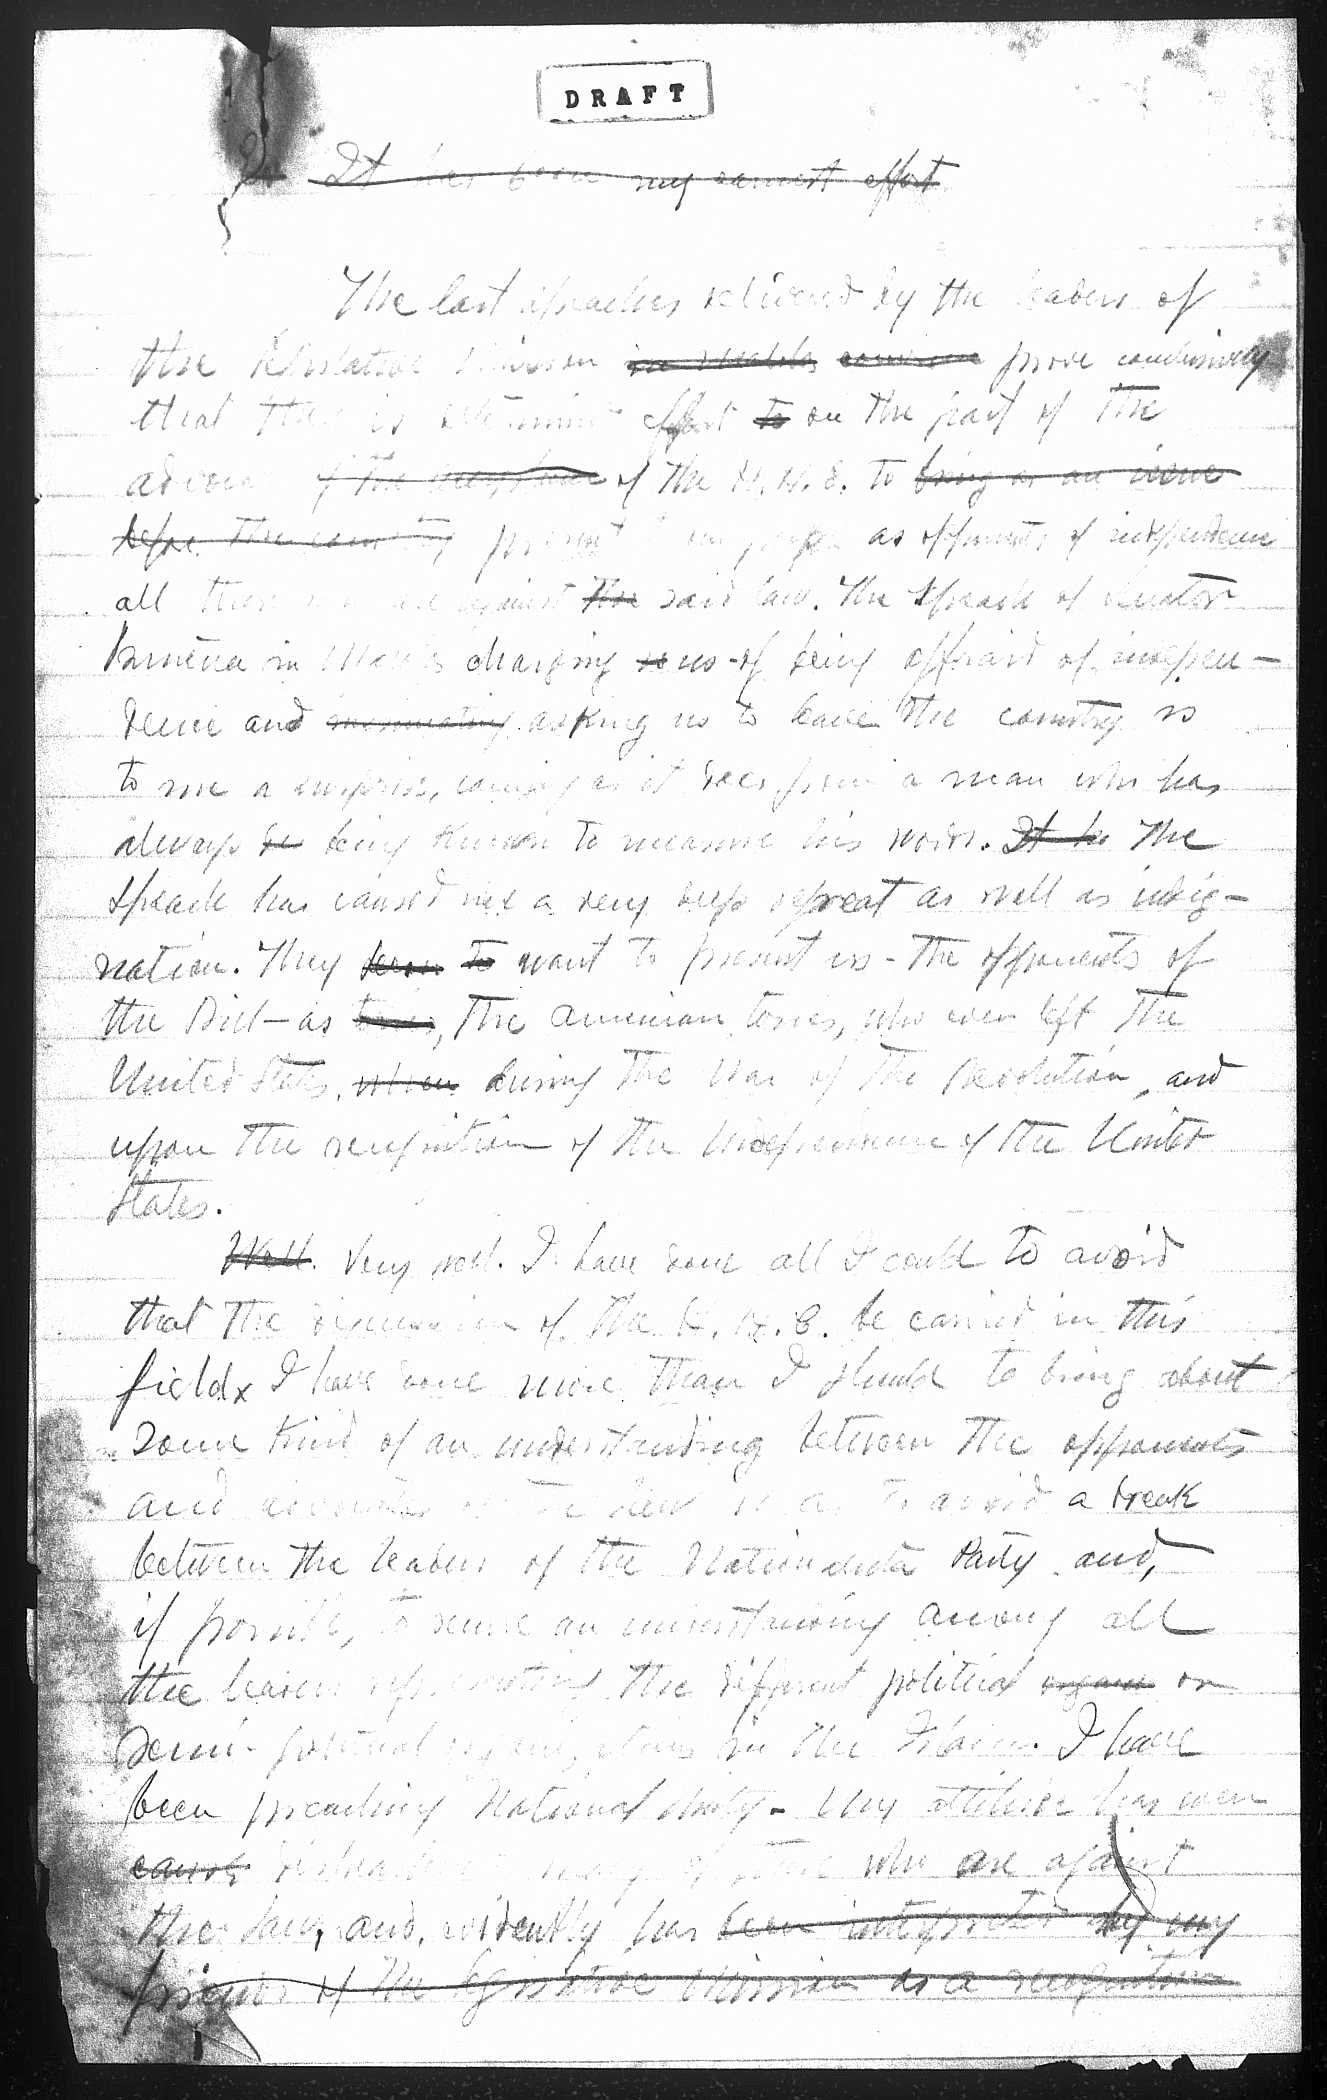 DRAFT
It has been my earnest effort
The last speaches delivered by the leaders of
the Legislative Mission prove conclusively
that there is determined effort to on the part of the
of the of the H. H. C. to bring as an issue
before the country present as opponents of independence
all those who are against the said law. The Speach of Senator
Osmeña in Manila charging us of being affraid of indepen-
dence and insinuating asking us to leave the country is
to me a surprise, coming as it does from a man who has
always be being known to measure his words. It has The
Speach has caused me a very deep regreat as well as indig-
nation. They seem to want to present us - the opponents of
the Bill - as tories, the American tories, who even left the
United States, when during the War of the Revolution, and
upon the recognition of the Independence of the United
States.
Well. Very well. I have done all I could to avoid
that the discussion of the H. H. C. be carried in this
field x I have done more than I should to bring about
some kind of an understanding between the opponents
and advocates of the law so as to avoid a break
between the leaders of the Nacionalista Party and,
if possible, to secure an understanding among all
the leaders representing the different political organi or
semi-political organizations in the Islands. I have
been preaching National Unity - My attitude has even
caused who are against
the law, and, evidently has been interpreted by my
friends of the Legislative Mission as a recognition